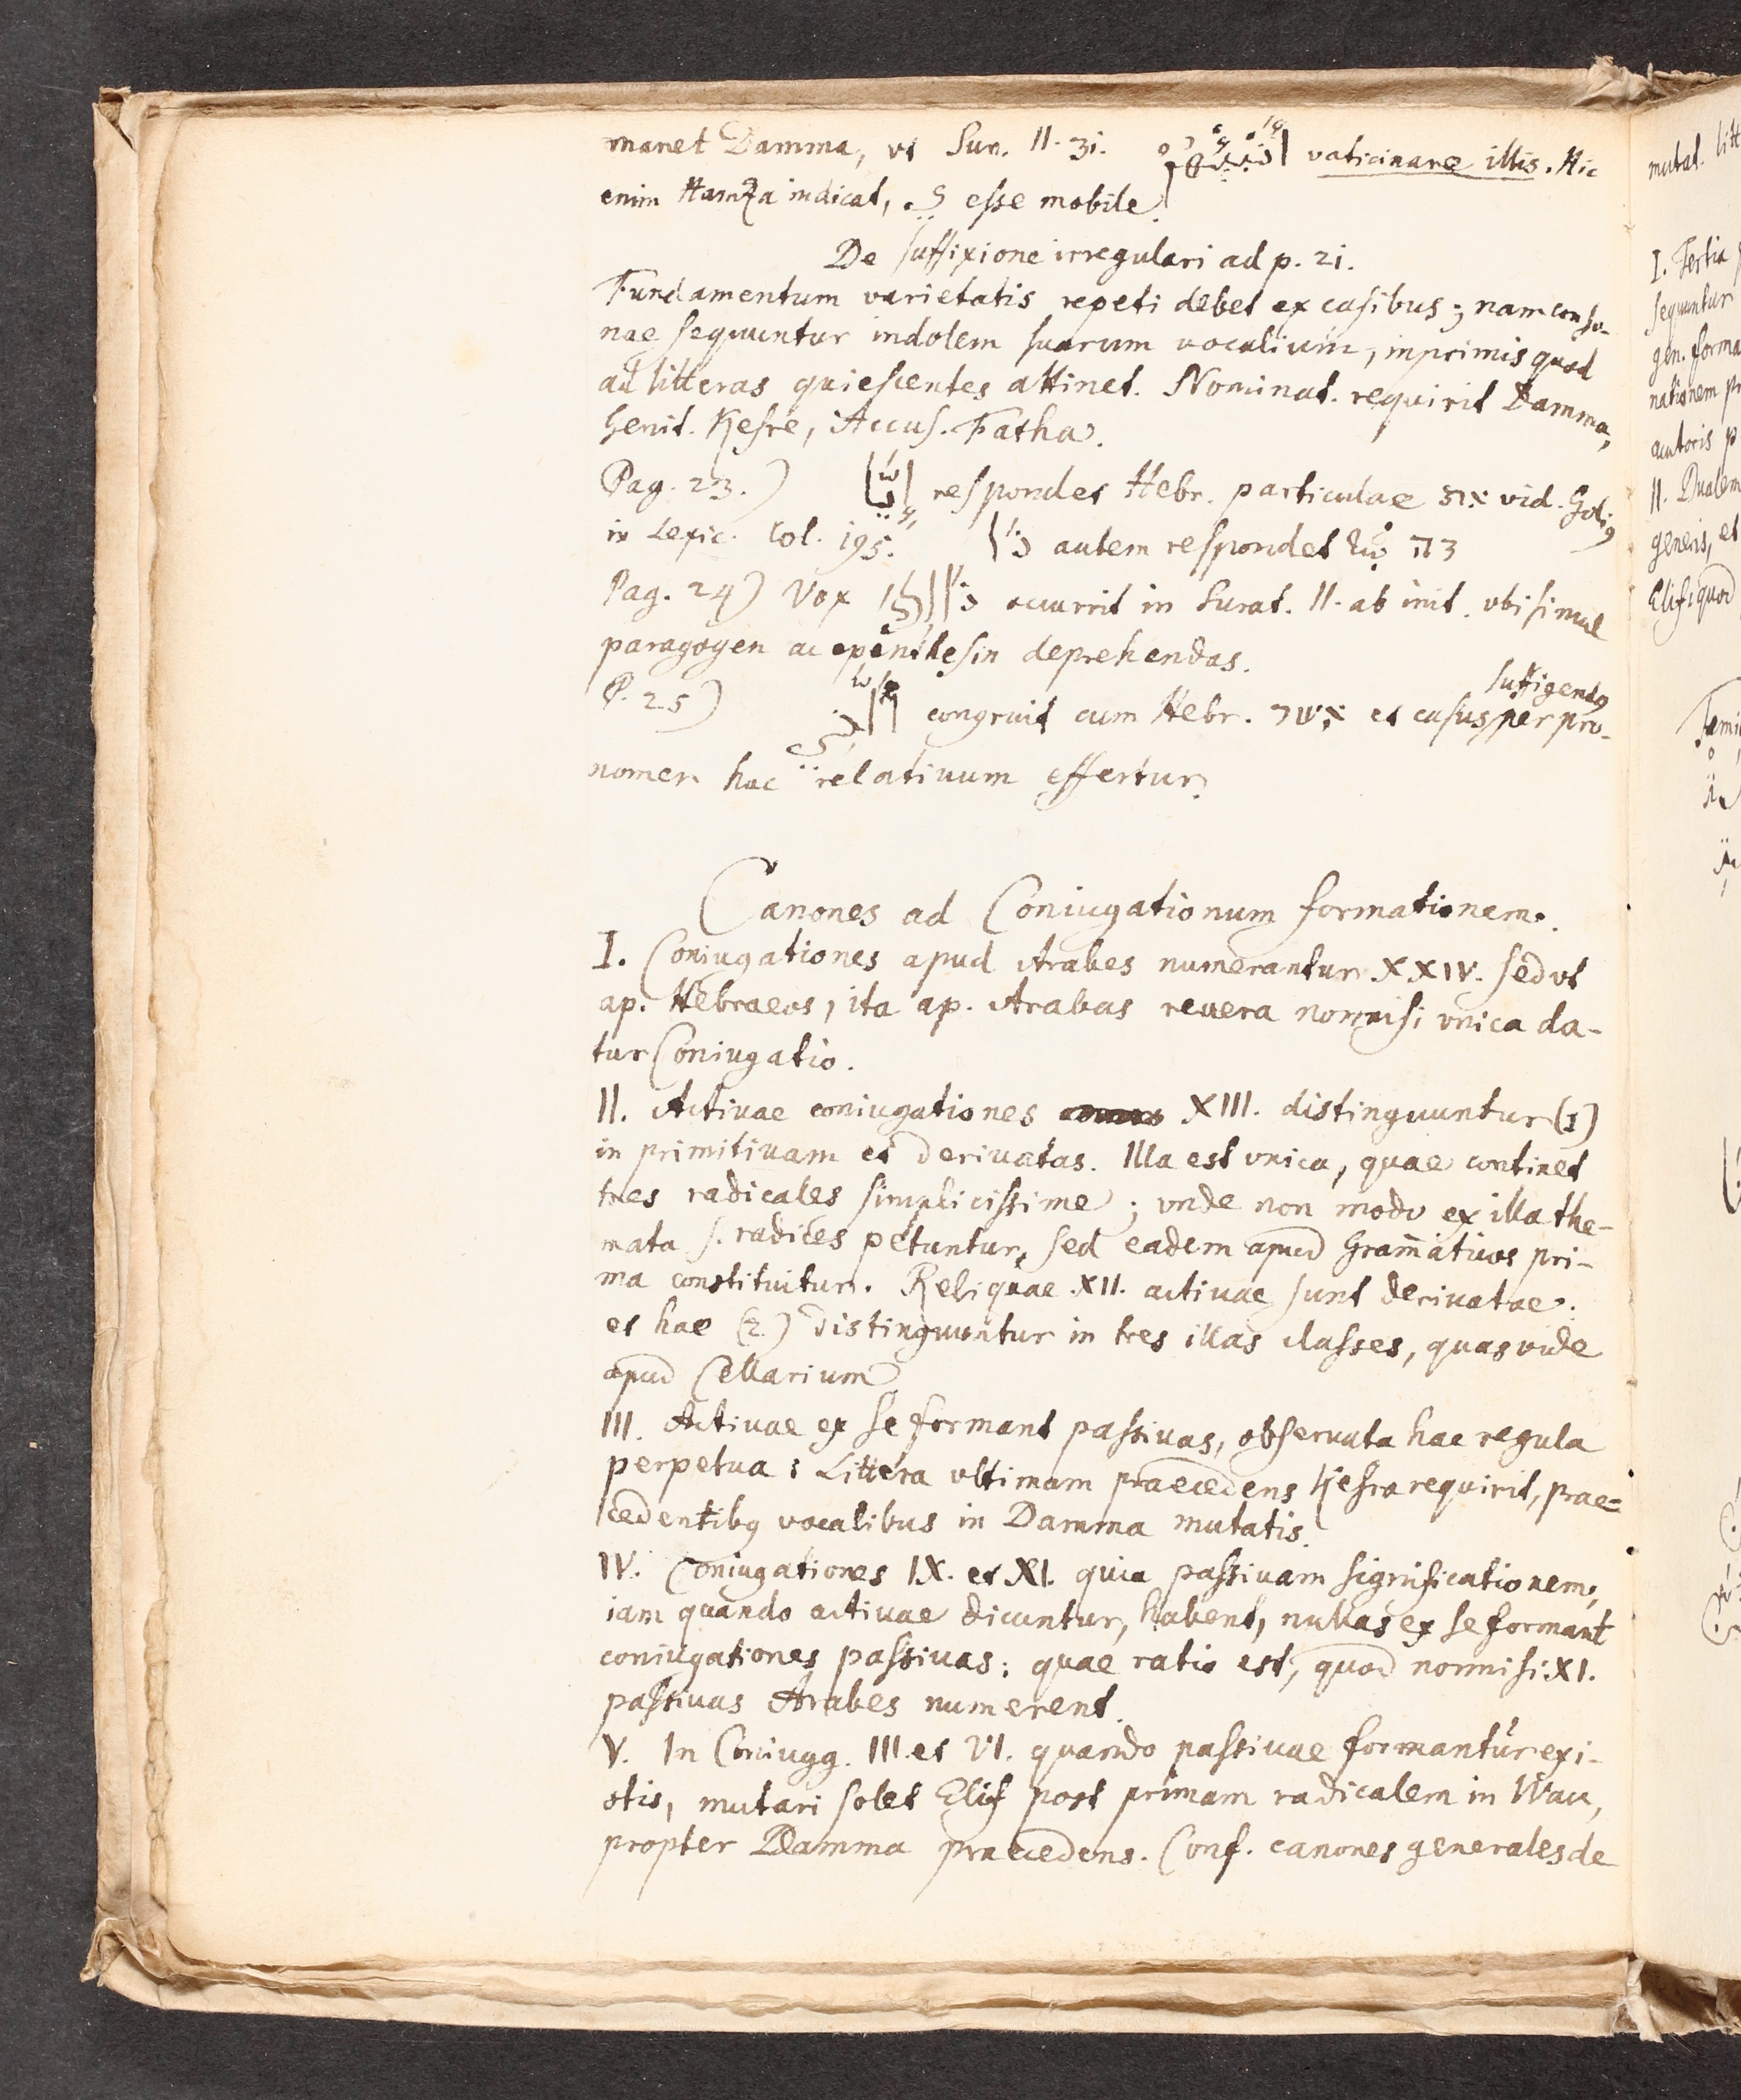 manet Damma, vt Sur. II. 31. أَنْبِئْهُمْ vaticinare illis. Hic
enim Hamza indicat, ي esse mobile.
De suffixione irregulari ad p. 21.
Fundamentum varietatis repeti debet ex casibus; nam conso-
nae sequuntur indolem suarum vocalium, inprimis quod
ad litteras quiescentes attinet. Nominat. requirit Damma,
Genit. Kesre, Accus. Fatha.
Pag. 23.) إِيَّا respondet Hebr. particulae את vid. Golius
in Lexic. Col. 195. ذا autem respondet זה
Pag. 24) Vox ذلك occurrit in Surat. II. ab init. vbi simul
paragogen ac epenthesin deprehendas.
suffigendo
P. 25) الذي congruit cum Hebr. אשר et casus per pro-
nomen hac relativum effertur.
Canones ad Coniugationum formationem.
I. Coniugationes apud Arabes numerantur XXIV. sed vt
ap. Hebraeos, ita ap. Arabas reuera nonnisi vnica da-
tur Coniugatio.
II. Actiuae coniugationes XIII. distinguuntur (1)
in primitiuam et deriuatas. Illa est vnica, quae continet
tres radicales simplicissime; vnde non modo ex illa the-
mata s. radices petuntur, sed eadem apud Gram̄aticos pri-
ma constituitur. Reliquae XII. actiuae sunt deriuatae.
et hae (2.) distinguuntur in tres illas classes, quas vide
apud Cellarium
III. Actiuae ex se formant passiuas, obseruata hac regula
perpetua: Littera vltimam praecedens Kesra requirit, prae-
cedentibꝯ vocalibus in Damma mutatis.
IV. Coniugationes IX. et XI. quia passiuam significationem,
iam quando actiuae dicuntur, habent, nullas ex se formant
coniugationes passiuas; quae ratio est, quod nonnisi XI.
passiuas Arabes numerent.
V. In Coniugg. III. et VI. quando passiuae formantur ex i-
stis, mutari solet Elif post primam radicalem in Wau,
propter Damma praecedens. Conf. canones generales de